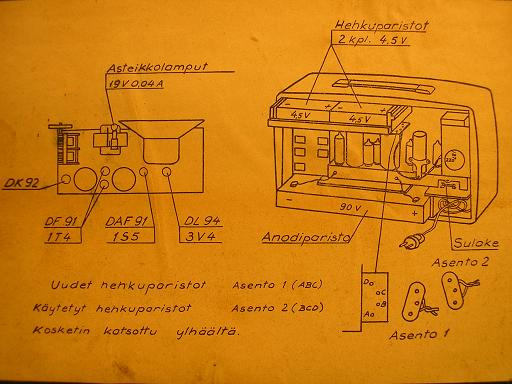 Hehkuparistot
2 kpl. 4,5 V
Asteikkolamput
19V 0,04 A
- + - +
4,5V 4,5V
DK92
DF 91
1T4
DAF 91
1S5
DL 94
3V4
- 90 V +
Anodiparisto
Sulake
Asento 2
Uudet hehkuparistot Asento 1 (ABC)
Käytetyt hehkuparistot Asento 2 (BCD)
Kosketin katsottu ylhäältä.
D
C
B
A
Asento 1